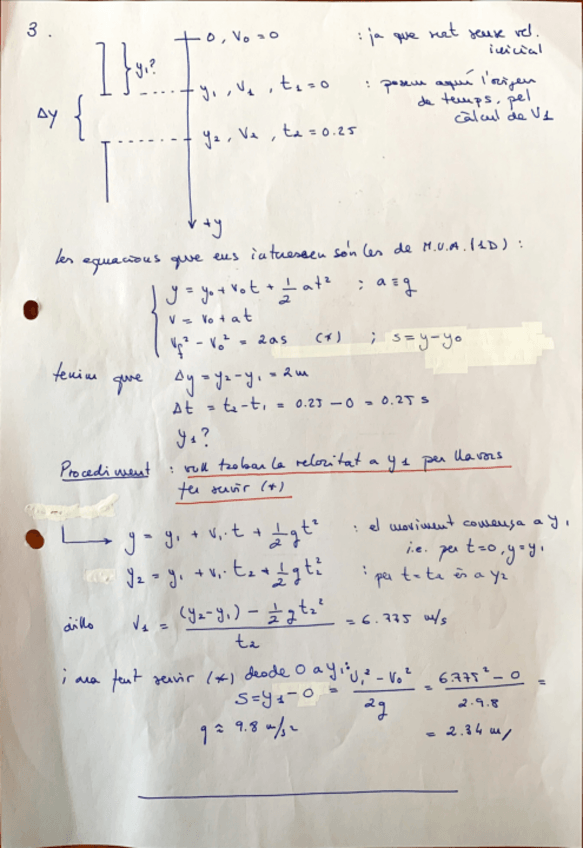 3.
0, V₀ = 0 : ja que surt sense vel. inicial
y₁?
y₁, V₁, t₁ = 0 : posem aquí l'origen de temps, pel càlcul de V1
Δy
y₂, V₂, t₂ = 0.25
+y
Les equacions que ens interessen són les de M.U.A. (1D) :
y = y₀ + v₀t + 1/2 at² ; a ≡ g
v = v₀ + at
v_f² - v₀² = 2as (*) ; s = y - y₀
tenim que Δy = y₂ - y₁ = 2m
Δt = t₂ - t₁ = 0.25 - 0 = 0.25 s
y₁?
Procediment : vull trobar la velocitat a y1 per llavors
fer servir (*)
y = y₁ + v₁·t + 1/2 gt² : el moviment comença a y₁
i.e. per t=0, y=y₁
y₂ = y₁ + v₁·t₂ + 1/2 gt₂² : per t=t₂ és a y₂
aïllo V₁ = ((y₂-y₁) - 1/2 gt₂²) / t₂ = 6.775 m/s
i ara fent servir (*) desde 0 a y₁:
s = y1 - 0 = (v₁² - v₀²) / 2g = (6.775² - 0) / 2·9.8 =
g ≈ 9.8 m/s²
= 2.34 m/